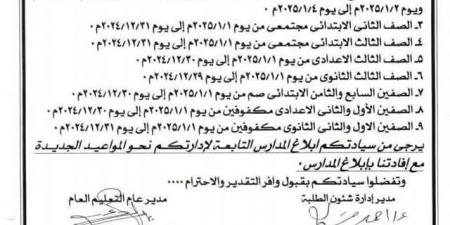 ويوم ٢٠٢٥/١/٢م إلى يوم ٢٠٢٥/١/٤م ٠
٣ـ الصف الثانى الابتدائى مجتمعى من يوم ٢٠٢٥/١/١م إلى يوم ٢٠٢٤/١٢/٣١م ٠
٤ـ الصف الثالث الابتدائى مجتمعى من يوم ٢٠٢٥/١/١م إلى يوم ٢٠٢٤/١٢/٣١م ٠
٥ـ الصف الثالث الاعدادى من يوم ٢٠٢٥/١/١م إلى يوم ٢٠٢٤/١٢/٣٠م ٠
٦ـ الصف الثالث الثانوى من يوم ٢٠٢٥/١/١م إلى يوم ٢٠٢٤/١٢/٢٩م ٠
٧ـ الصفين السابع والثامن الابتدائى صم من يوم ٢٠٢٥/١/١م إلى يوم ٢٠٢٤/١٢/٣٠م ٠
٨ـ الصفين الأول والثانى الاعدادى مكفوفين من يوم ٢٠٢٥/١/١م إلى يوم ٢٠٢٤/١٢/٣٠م ٠
٩ـ الصفين الاول والثانى الثانوى مكفوفين من يوم ٢٠٢٥/١/١م إلى يوم ٢٠٢٤/١٢/٣١م ٠
يرجى من سيادتكم ابلاغ المدارس التابعة لإدارتكم نحو المواعيد الجديدة
مع إفادتنا بإبلاغ المدارس ٠
وتفضلوا سيادتكم بقبول وافر التقدير والاحترام ٠٠٠٠
مدير إدارة شئون الطلبة
مدير عام التعليم العام